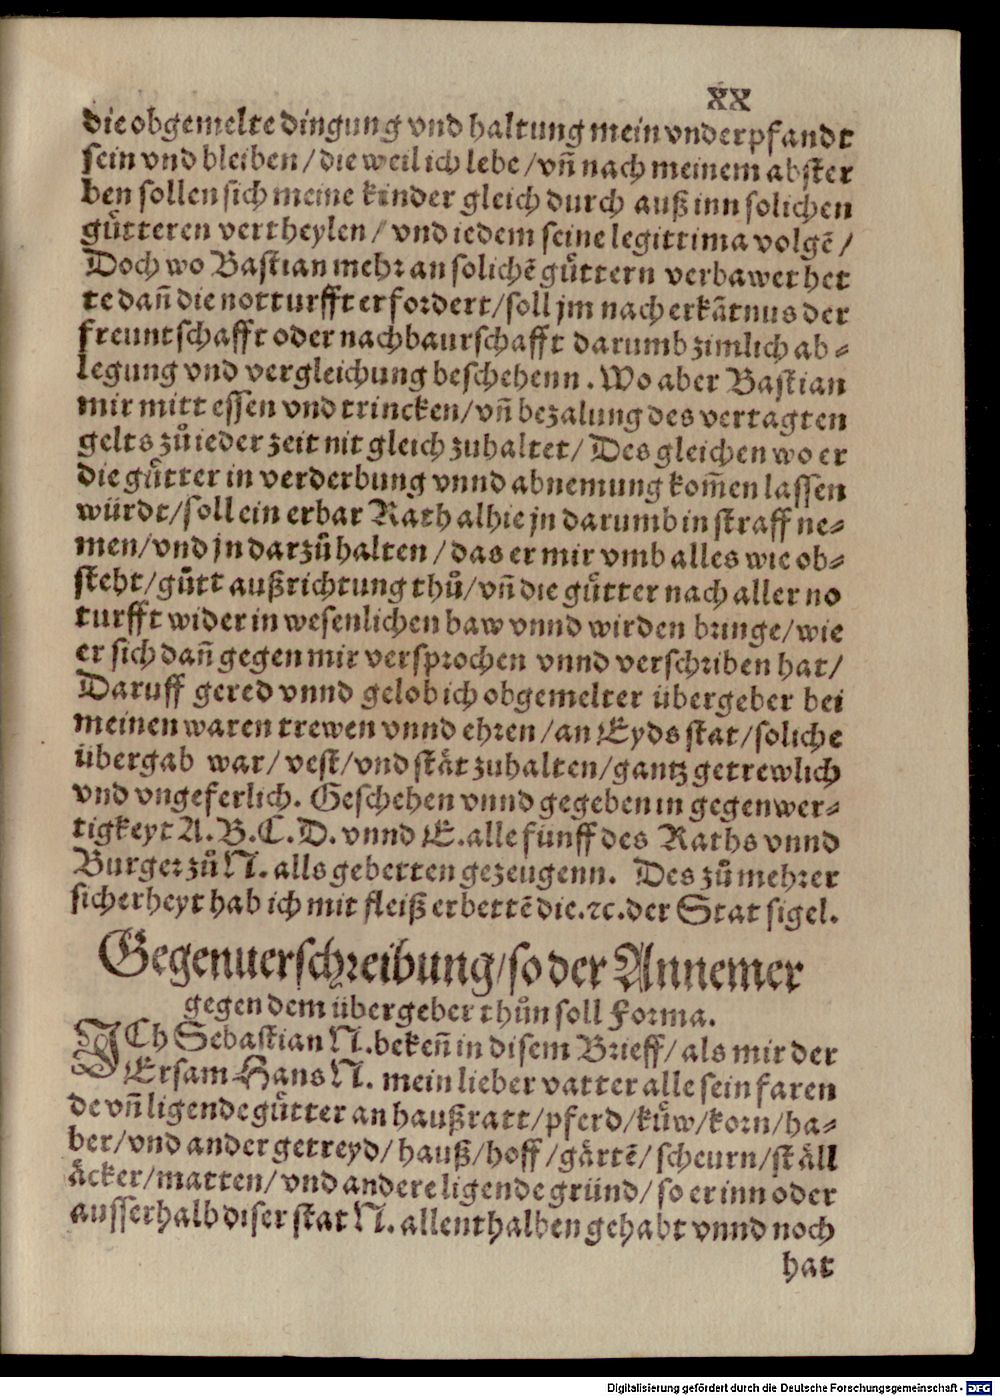 XX
die obgemelte dingung vnd haltung mein vnderpfandt
sein vnd bleiben / die weil ich lebe / vn̄ nach meinem abster
ben sollen sich meine kinder gleich durch auß inn solichen
guͤtteren vertheylen / vnd iedem seine legittima volgē /
Doch wo Bastian mehr an solichē guͤttern verbawet het
te dan̄ die notturfft erfordert / soll jm nach erkātnus der
freuntschafft oder nachbaurschafft darumb zimlich ab-
legung vnd vergleichung beschehenn. Wo aber Bastian
mir mitt essen vnd trincken / vn̄ bezalung des vertagten
gelts zuͦ ieder zeit nit gleich zuhaltet / Des gleichen wo er
die guͤtter in verderbung vnnd abnemung kom̄en lassen
würdt / soll ein erbar Rath alhie jn darumb in straff ne-
men / vnd jn darzuͦ halten / das er mir vmb alles wie ob-
steht / guͤtt außrichtung thuͦ / vn̄ die guͤtter nach aller no
turfft wider in wesenlichen baw vnnd wirden bringe / wie
er sich dan̄ gegen mir versprochen vnnd verschriben hat /
Daruff gered vnnd gelob ich obgemelter übergeber bei
meinen waren trewen vnnd ehren / an Eyds stat / soliche
übergab war / vest / vnd staͤt zuhalten / gantz getrewlich
vnd vngeferlich. Geschehen vnnd gegeben in gegenwer-
tigkeyt A. B. C. D. vnnd E. alle fünff des Raths vnnd
Burger zuͦ N. alls gebetten gezeugenn. Des zuͦ mehrer
sicherheyt hab ich mit fleiß erbettē die. ꝛc. der Stat sigel.
Gegenuerschreibung / so der Annemer
gegen dem übergeber thuͦn soll Forma.
ICh Sebastian N. beken̄ in disem Brieff / als mir der
Ersam Hans N. mein lieber vatter alle sein faren
de vn̄ ligende guͤtter an haußratt / pferd / kuͤw / korn / ha-
ber / vnd ander getreyd / hauß / hoff / gaͤrtē / scheurn / staͤll
aͤcker / matten / vnd andere ligende gründ / so er inn oder
ausserhalb diser stat N. allenthalben gehabt vnnd noch
hat
Digitalisierung gefördert durch die Deutsche Forschungsgemeinschaft - DFG